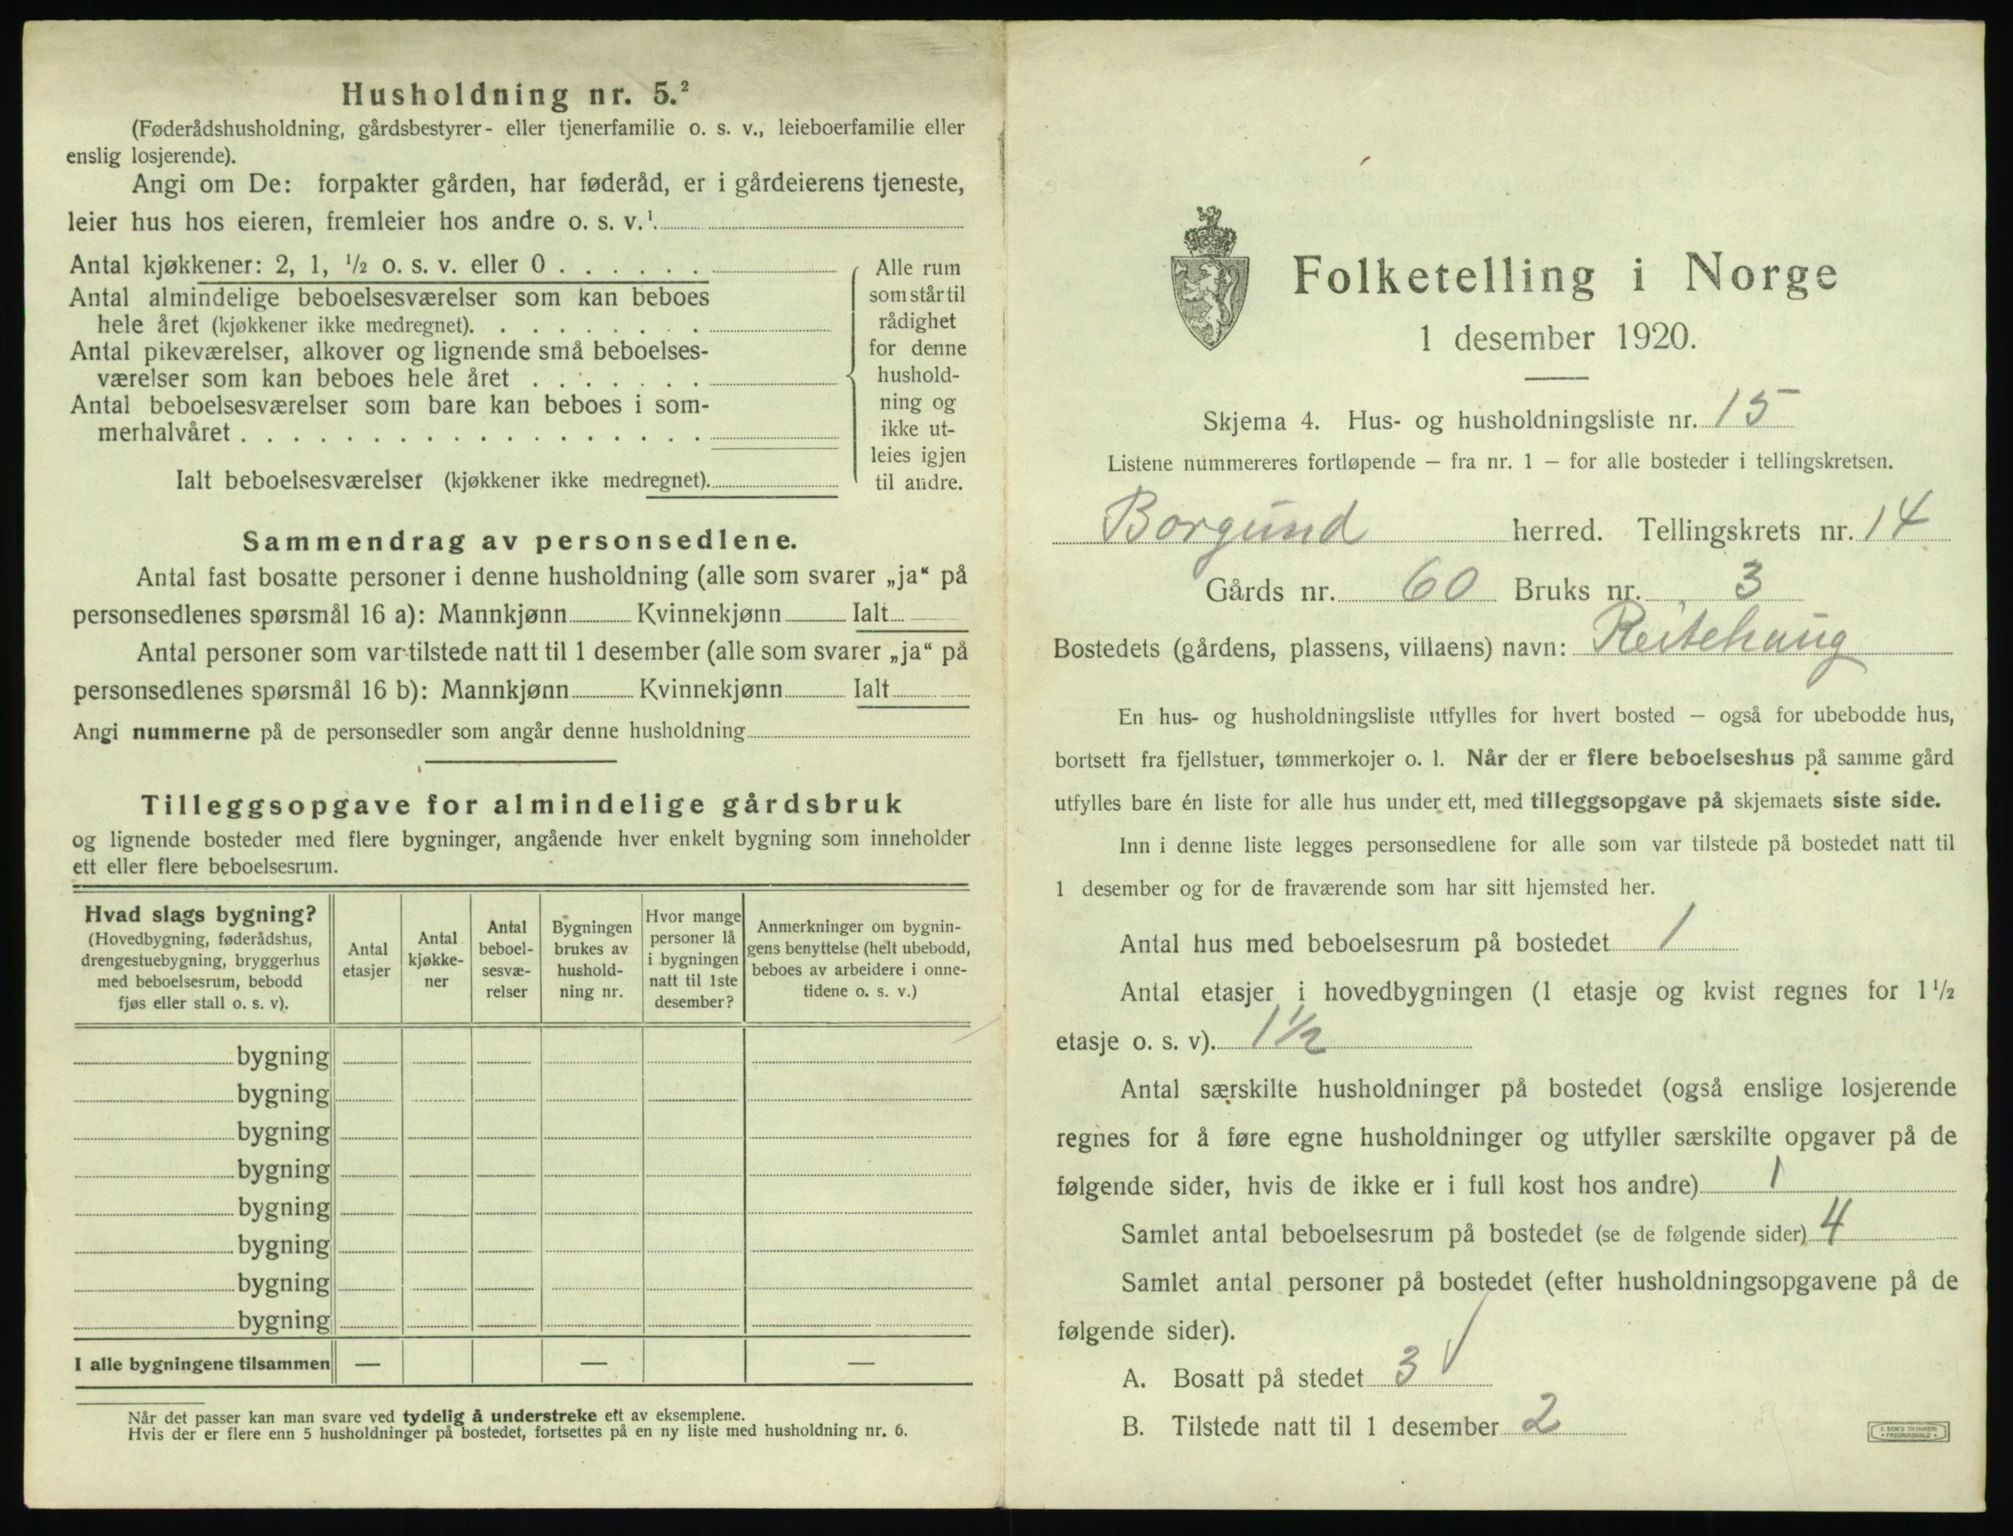 Husholdning nr. 5.²
(Føderådshusholdning, gårdsbestyrer- eller tjenerfamilie o. s. v., leieboerfamilie eller
enslig losjerende).
Angi om De: forpakter gården, har føderåd, er i gårdeierens tjeneste,
leier hus hos eieren, fremleier hos andre o. s. v.¹
Antal kjøkkener: 2, 1, ½ o. s. v. eller 0 . . . . . .
Antal almindelige beboelsesværelser som kan beboes
hele året (kjøkkener ikke medregnet). . . . . . . .
Antal pikeværelser, alkover og lignende små beboelses-
værelser som kan beboes hele året . . . . . . .
Antal beboelsesværelser som bare kan beboes i som-
merhalvåret . . . . . . . . . . . . . . . . . .
Ialt beboelsesværelser (kjøkkener ikke medregnet).
Alle rum
som står til
rådighet
for denne
hushold-
ning og
ikke ut-
leies igjen
til andre.
Sammendrag av personsedlene.
Antal fast bosatte personer i denne husholdning (alle som svarer „ja“ på
personsedlenes spørsmål 16 a): Mannkjønn Kvinnekjønn Ialt
Antal personer som var tilstede natt til 1 desember (alle som svarer „ja“ på
personsedlenes spørsmål 16 b): Mannkjønn Kvinnekjønn Ialt
Angi nummerne på de personsedler som angår denne husholdning
Tilleggsopgave for almindelige gårdsbruk
og lignende bosteder med flere bygninger, angående hver enkelt bygning som inneholder
ett eller flere beboelsesrum.
Hvad slags bygning?
(Hovedbygning, føderådshus,
drengestuebygning, bryggerhus
med beboelsesrum, bebodd
fjøs eller stall o. s. v).
Antal
etasjer
Antal
kjøkke-
ner
Antal
beboel-
sesvæ-
relser
Bygningen
brukes av
hushold-
ning nr.
Hvor mange
personer lå
i bygningen
natt til 1ste
desember?
Anmerkninger om bygnin-
gens benyttelse (helt ubebodd,
beboes av arbeidere i onne-
tidene o. s. v.)
bygning
bygning
bygning
bygning
bygning
bygning
bygning
bygning
I alle bygningene tilsammen — — —
Når det passer kan man svare ved tydelig å understreke ett av eksemplene.
Hvis der er flere enn 5 husholdninger på bostedet, fortsettes på en ny liste med husholdning nr. 6.
Folketelling i Norge
1 desember 1920.
Skjema 4. Hus- og husholdningsliste nr. 15
Listene nummereres fortløpende – fra nr. 1 – for alle bosteder i tellingskretsen.
Borgund herred. Tellingskrets nr. 14
Gårds nr. 60 Bruks nr. 3
Bostedets (gårdens, plassens, villaens) navn: Reitehaug
En hus- og husholdningsliste utfylles for hvert bosted – også for ubebodde hus,
bortsett fra fjellstuer, tømmerkojer o. l. Når der er flere beboelseshus på samme gård
utfylles bare én liste for alle hus under ett, med tilleggsopgave på skjemaets siste side.
Inn i denne liste legges personsedlene for alle som var tilstede på bostedet natt til
1 desember og for de fraværende som har sitt hjemsted her.
Antal hus med beboelsesrum på bostedet 1
Antal etasjer i hovedbygningen (1 etasje og kvist regnes for 1½
etasje o. s. v). 1½
Antal særskilte husholdninger på bostedet (også enslige losjerende
regnes for å føre egne husholdninger og utfyller særskilte opgaver på de
følgende sider, hvis de ikke er i full kost hos andre) 1
Samlet antal beboelsesrum på bostedet (se de følgende sider) 4
Samlet antal personer på bostedet (efter husholdningsopgavene på de
følgende sider).
A. Bosatt på stedet 3
B. Tilstede natt til 1 desember 2